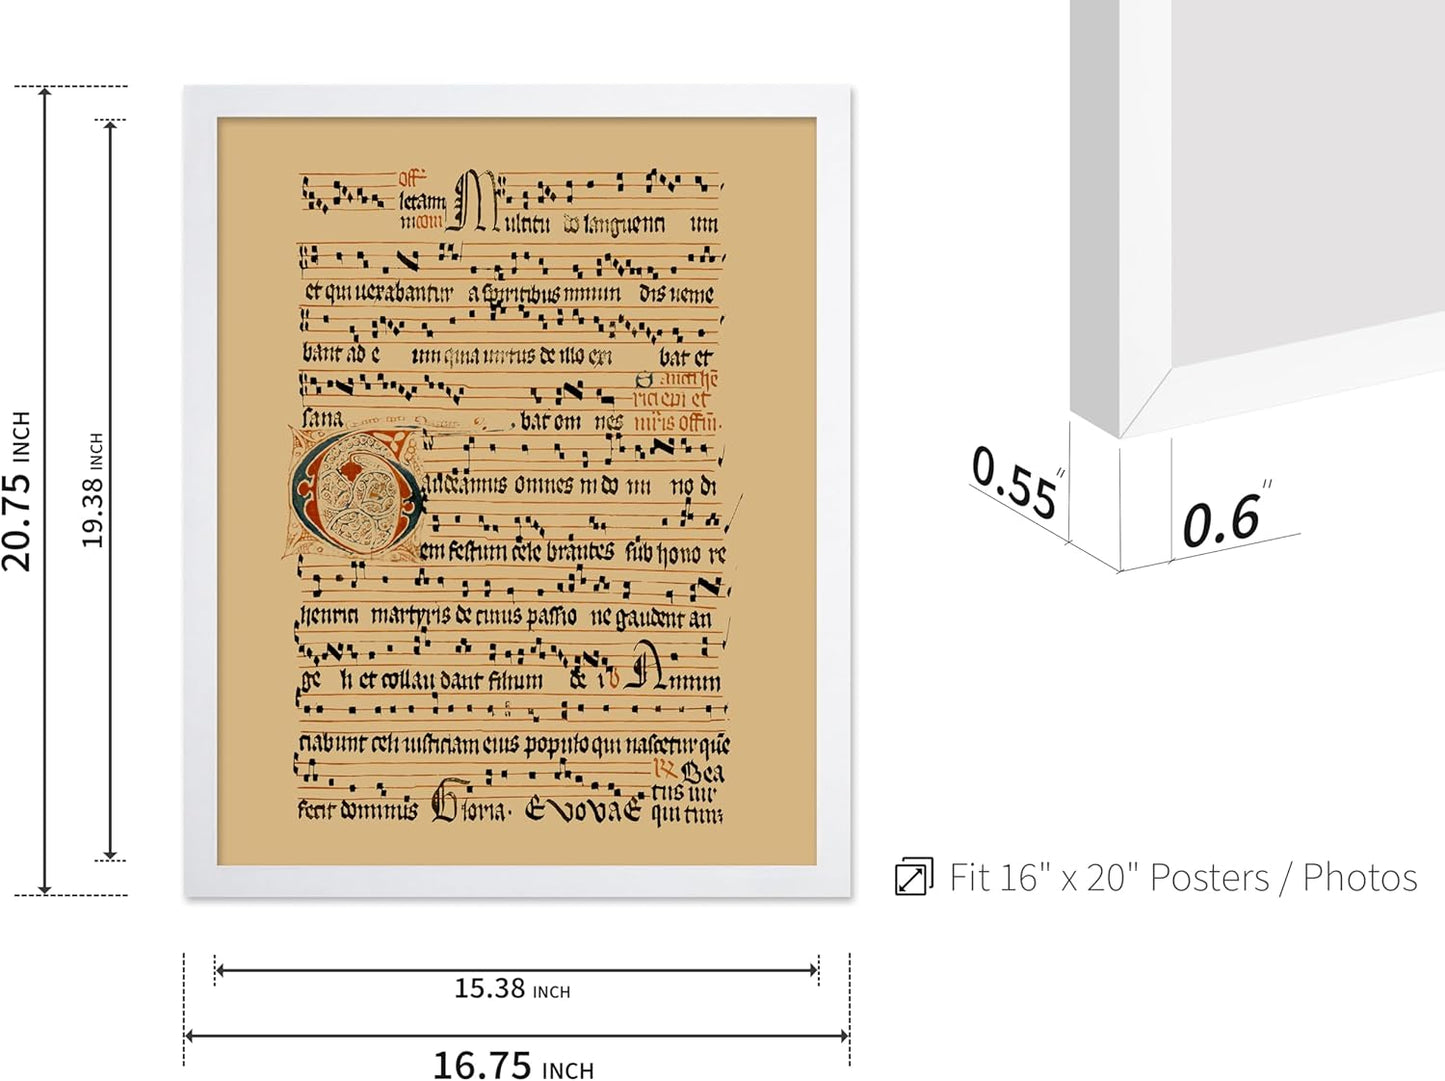 20.75 INCH
19.38 INCH
off
letam
Multitu do languenti um
et qui vexabantur a spiritibus inmun dis veme
bant ad e um quia virtus de illo exi bat et
sana bat om nes
audeamus omnes in do mi no di
em festum cele brantes sub hono re
henrici martyris de cuius passio ne gaudent an
ge li et collau dant filium de i
ciabunt celi iusticiam eius populo qui nascetur que
Bea
fecit dominus Gloria. EVOVAE
0.55"
0.6"
Fit 16" x 20" Posters / Photos
15.38 INCH
16.75 INCH